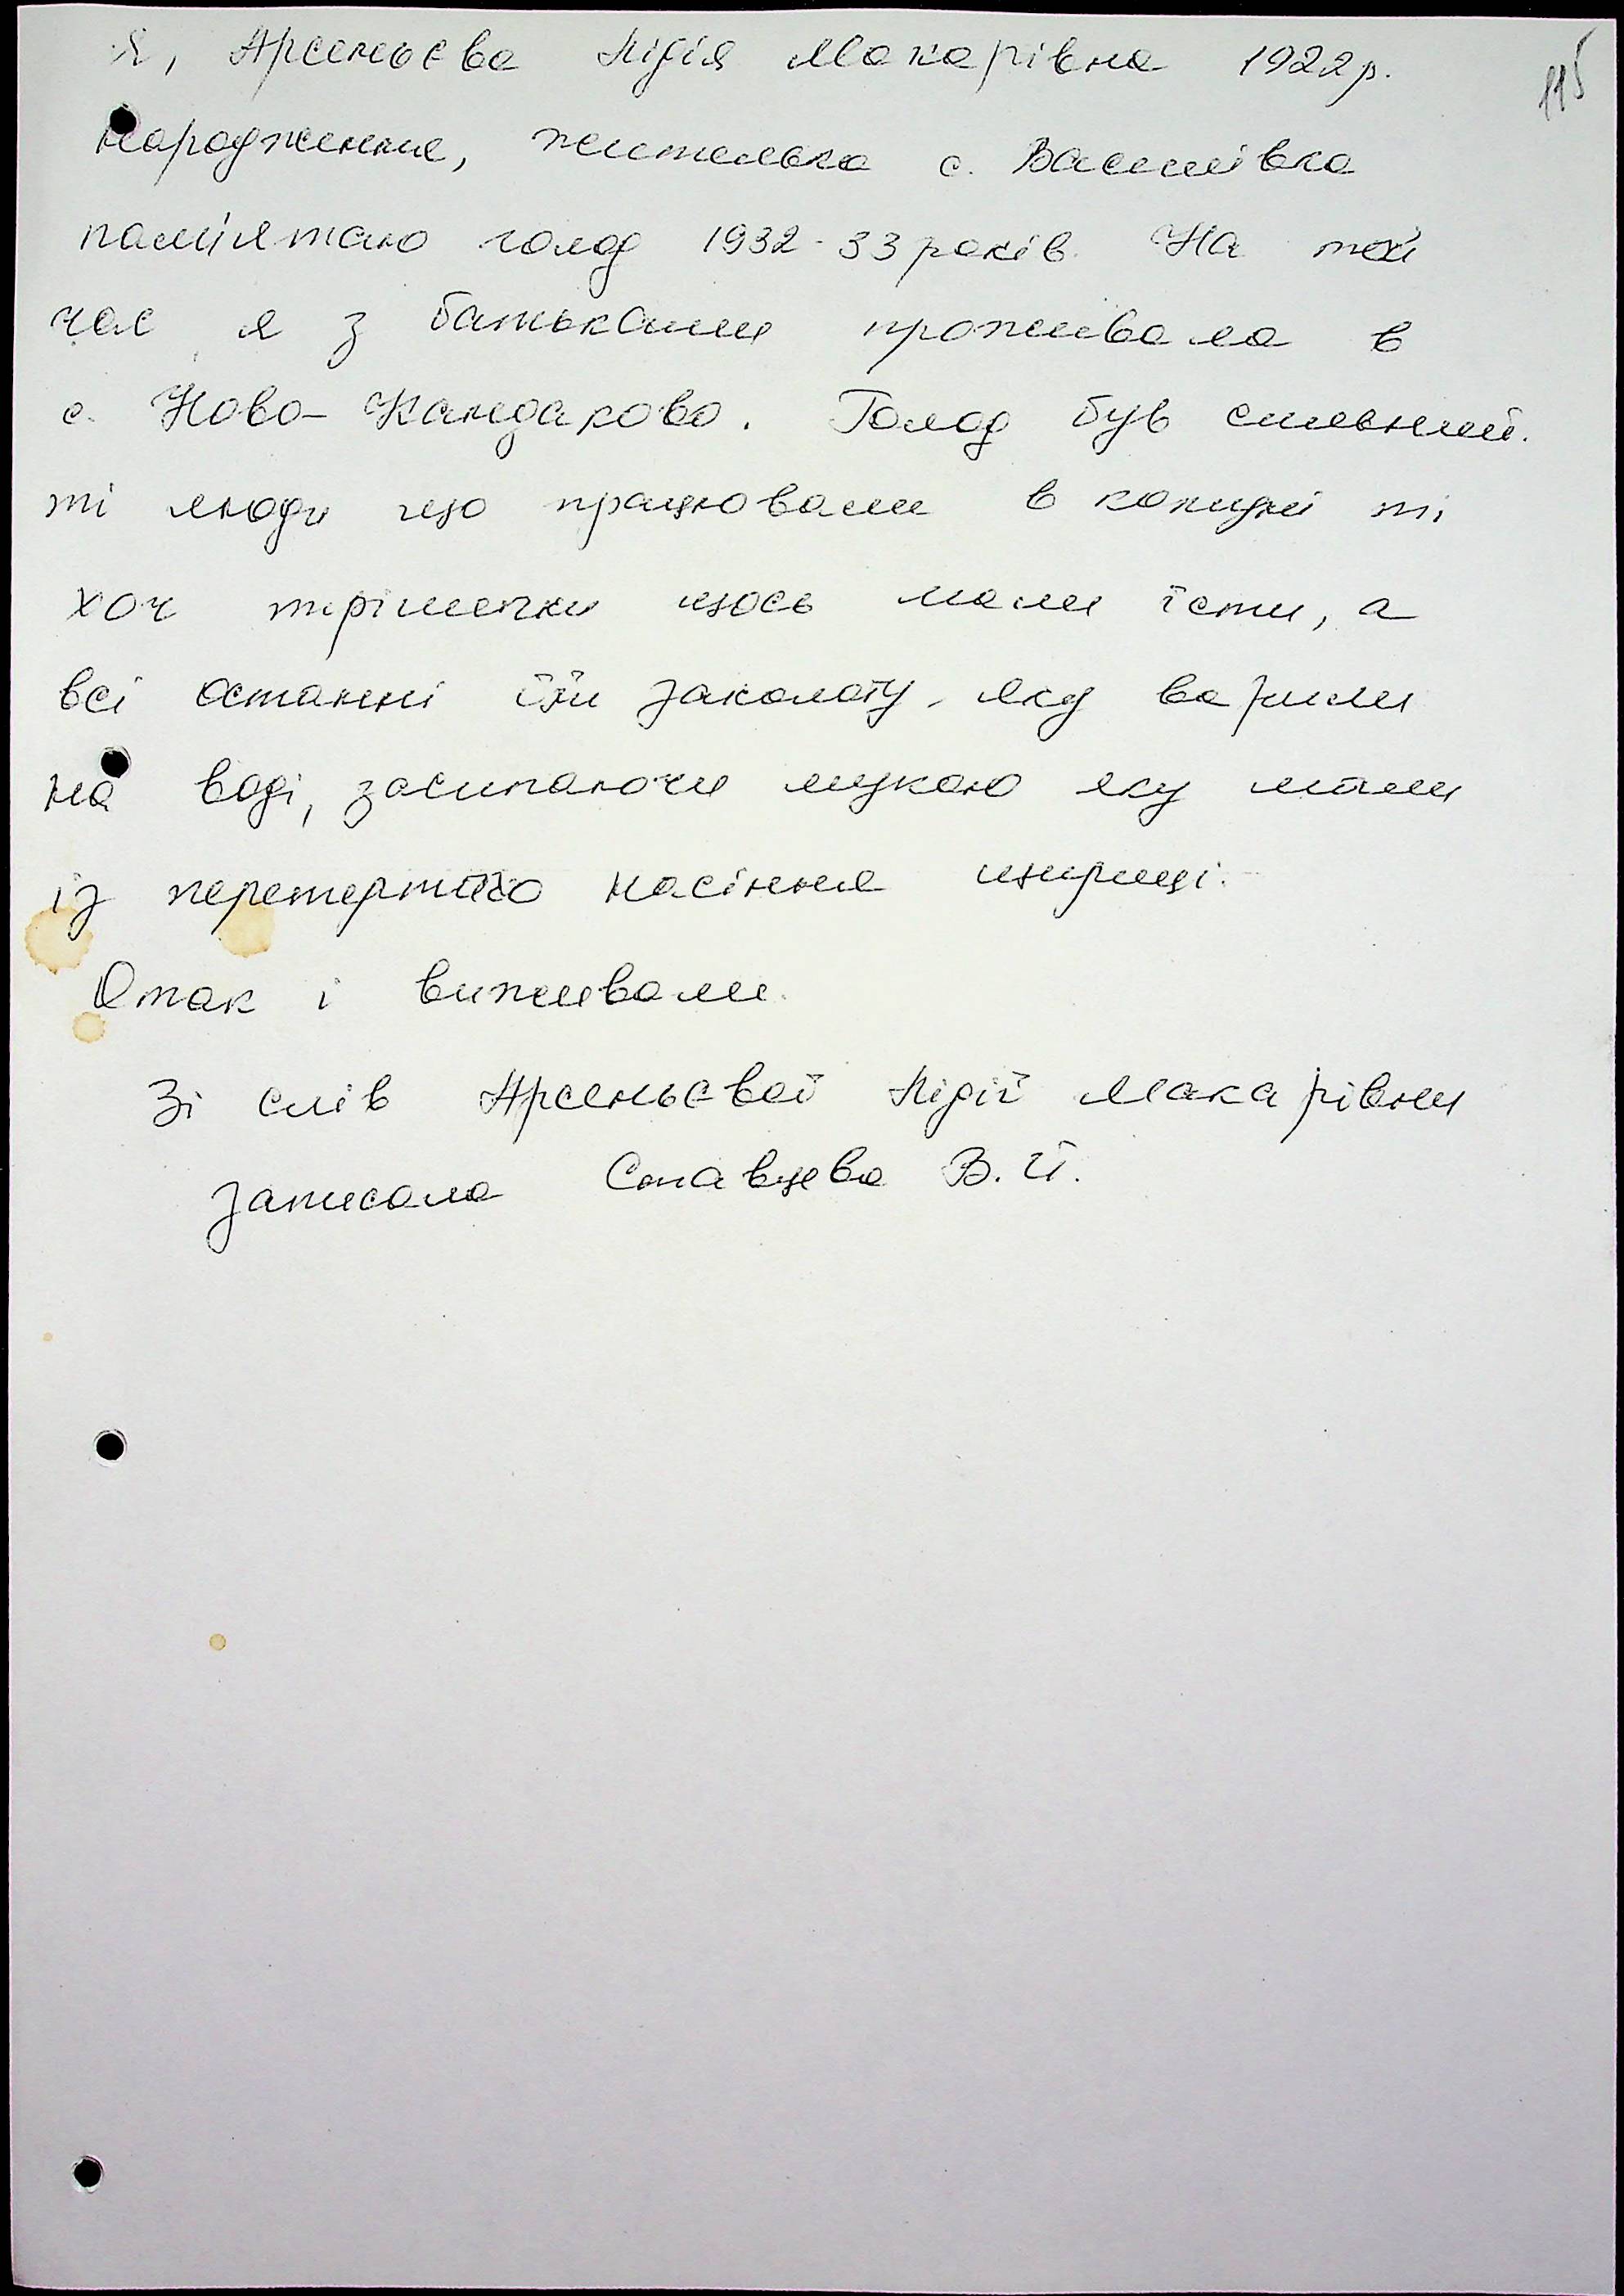 115
Я, Арсеньєва Лідія Макарівна 1922 р.
народження, жителька с. Василівка
пам'ятаю голод 1932-33 років. На той
час я з батьками проживала в
с. Ново-Кандаково. Голод був сильний.
ті люди що працювали в колгоспі ті
хоч трішечки щось мали їсти, а
всі останні їли заколоту, яку варили
на воді, засипаючи мукою яку мали
із перетертого насіння щириці.
Отак і виживали.
Зі слів Арсеньєвої Лідії Макарівни
записала Ставцева В.Й.